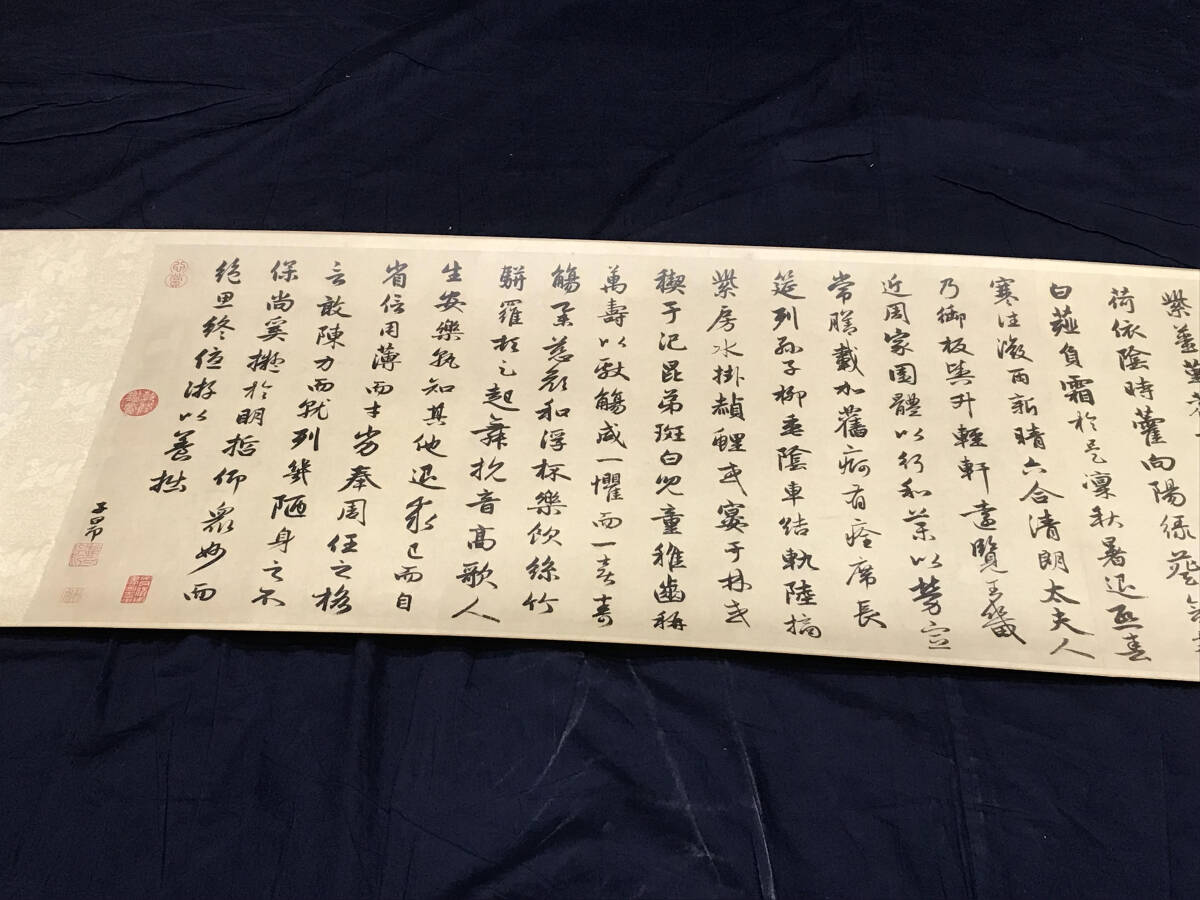 紫薑堇
荷依陰時藿向陽綠葵含
白薤負霜於是凜秋暑退熙春
寒往微雨新晴六合清朗太夫人
乃御板輿升輕軒遠覽王畿
近周家園體以行和藥以勞宣
常膳載加舊痾有痊席長
筵列孫子柳垂陰車結軌陸摘
紫房水掛赬鯉或宴于林或
禊于汜昆弟斑白兒童稚齒稱
萬壽以獻觴咸一懼而一喜壽
觴舉慈顏和浮杯樂飲絲竹
駢羅頓足起舞抗音高歌人
生安樂孰知其他退求己而自
省信用薄而才劣奉周任之格
言敢陳力而就列幾陋身之不
保尚奚擬於明哲仰眾妙而
絕思終優游以養拙
子昂